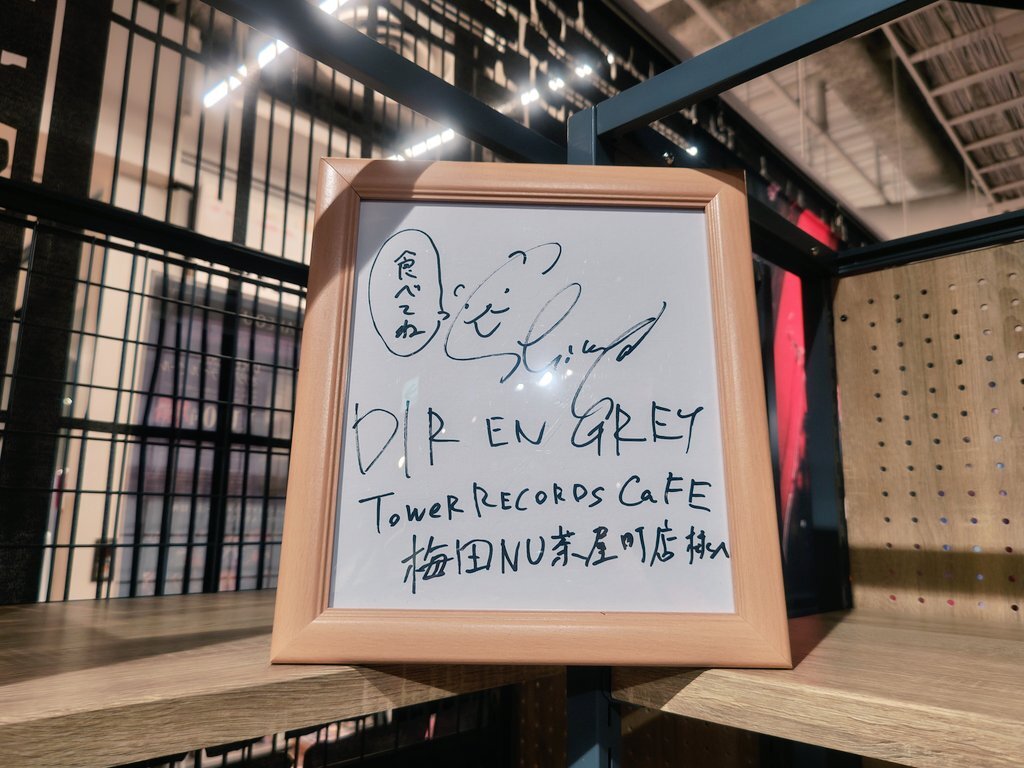 食べてね
Shinya
DIR EN GREY
TOWER RECORDS CAFE
梅田NU茶屋町店様へ